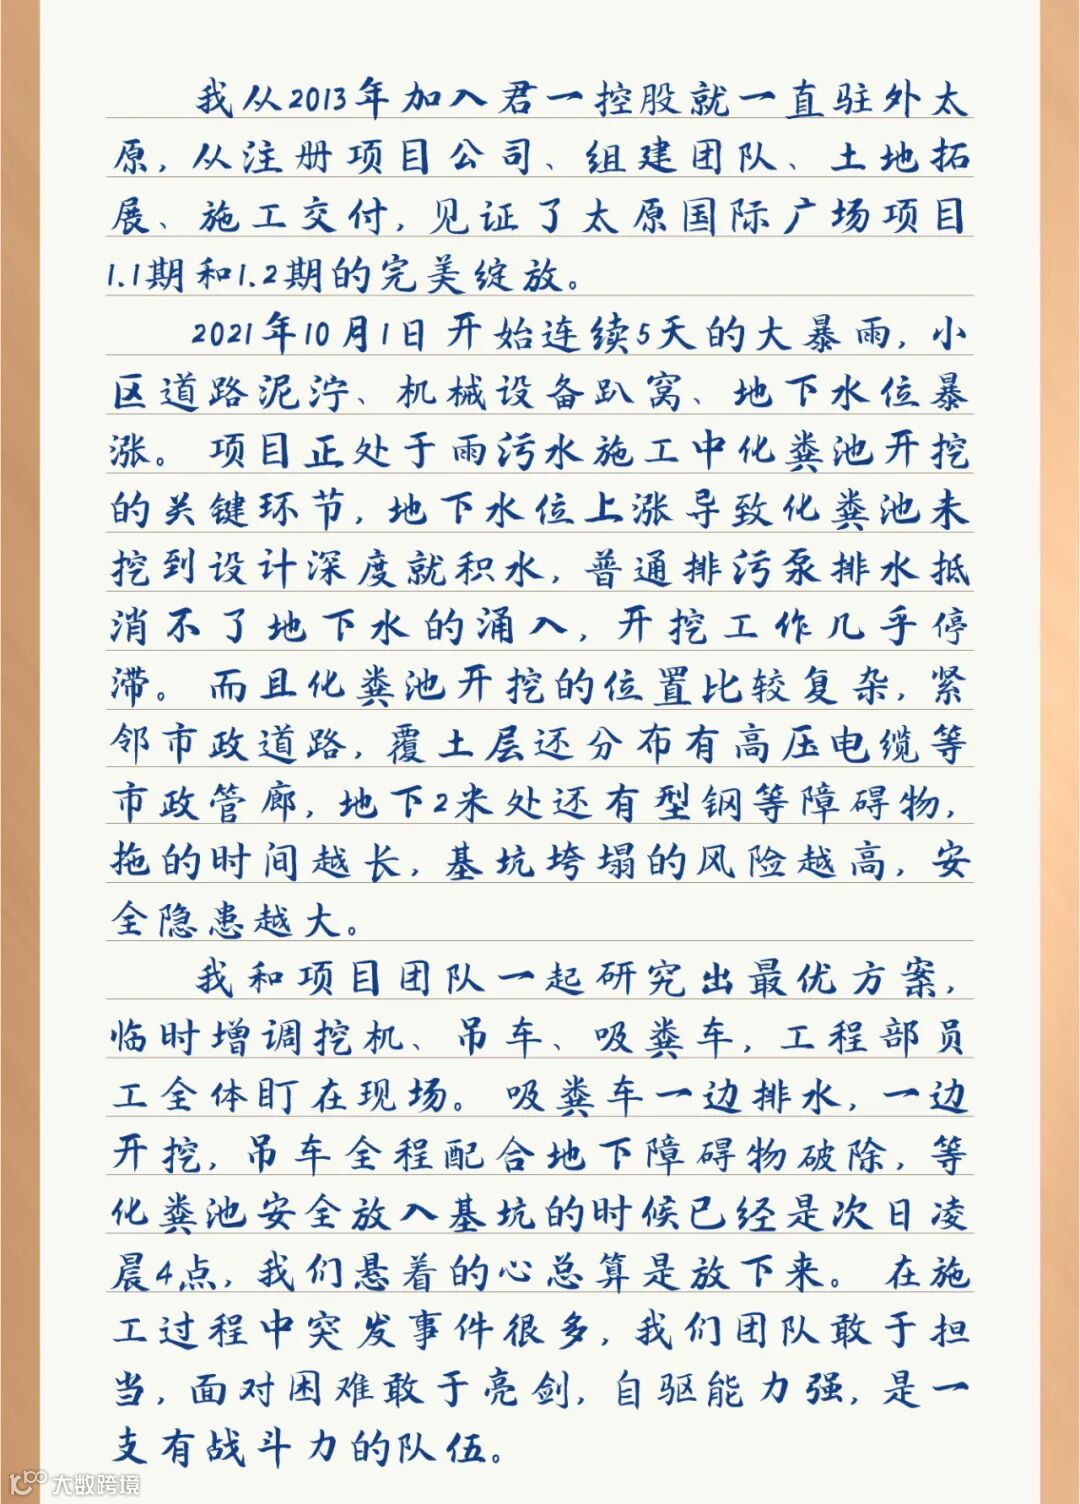 我从2013年加入君一控股就一直驻外太
原，从注册项目公司、组建团队、土地拓
展、施工交付，见证了太原国际广场项目
1.1期和1.2期的完美绽放。
2021年10月1日开始连续5天的大暴雨，小
区道路泥泞、机械设备趴窝、地下水位暴
涨。项目正处于雨污水施工中化粪池开挖
的关键环节，地下水位上涨导致化粪池未
挖到设计深度就积水，普通排污泵排水抵
消不了地下水的涌入，开挖工作几乎停
滞。而且化粪池开挖的位置比较复杂，紧
邻市政道路，覆土层还分布有高压电缆等
市政管廊，地下2米处还有型钢等障碍物，
拖的时间越长，基坑垮塌的风险越高，安
全隐患越大。
我和项目团队一起研究出最优方案，
临时增调挖机、吊车、吸粪车，工程部员
工全体盯在现场。吸粪车一边排水，一边
开挖，吊车全程配合地下障碍物破除，等
化粪池安全放入基坑的时候已经是次日凌
晨4点，我们悬着的心总算是放下来。在施
工过程中突发事件很多，我们团队敢于担
当，面对困难敢于亮剑，自驱能力强，是一
支有战斗力的队伍。
大数跨境